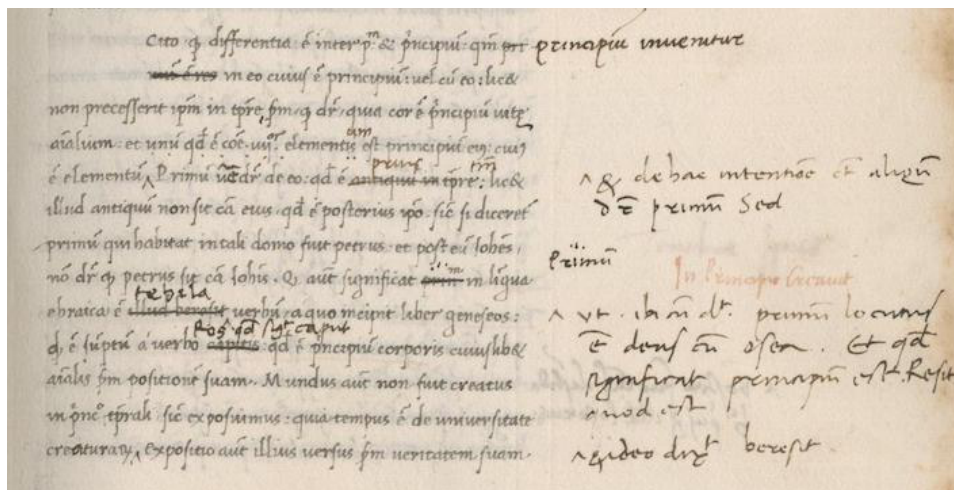 Cito q̨ differentia ē inter pᵐ & pͥncipiū: qm̄ pri principiū inuenitur
in eo cuius ē principiū: uel cū eo: lic&
non precesserit ip̄m in tp̄re, pᵐ, q̨ dr̄, quia cor ē pͥncipiū uite
aīalium. et unū qd̄ ē elementis um est principiū eiꝰ cuiꝰ
ē elementū ^ Primū dr̄ de eo: qd̄ ē antiquiꝰ in prius tp̄re tm̄: lic&
illud antiquū non sit cā eius, qd̄ ē posterius ip̄o. sic si diceret̄
primū qui habitat in tali domo fuit petrus. et post eū Iohēs,
nō dr̄ q̨ petrus sit cā Iohīs. Q, aut̄ significat prim in līgua
ebraica ē illud beresit tehila uerbū, a quo incipit liber geneseos:
q, ē sūptū a uerbo capitis Ros qd̄ sigͭ caput : qd̄ ē pͥncipiū corporis cuiuslib&
aīalis pᵐ positionē suam. Mundus aut̄ non fuit creatus
in pͥncͦ tp̄rali sic exposuimus: quia tempus ē de uniuersitate
creaturaꝝ, expositio aut̄ illius uersus pᵐ ueritatem suam.
^ & de hac intentiōe et aliqn̄
dr̄ primū Sed
Primū
In Principio creauit
^ ut. ibi cū dͭ. primū locutus
Ē deus cū osea. Et qd̄
significat principiū est. Resit
quod est
^ & ideo dixͭ beresit